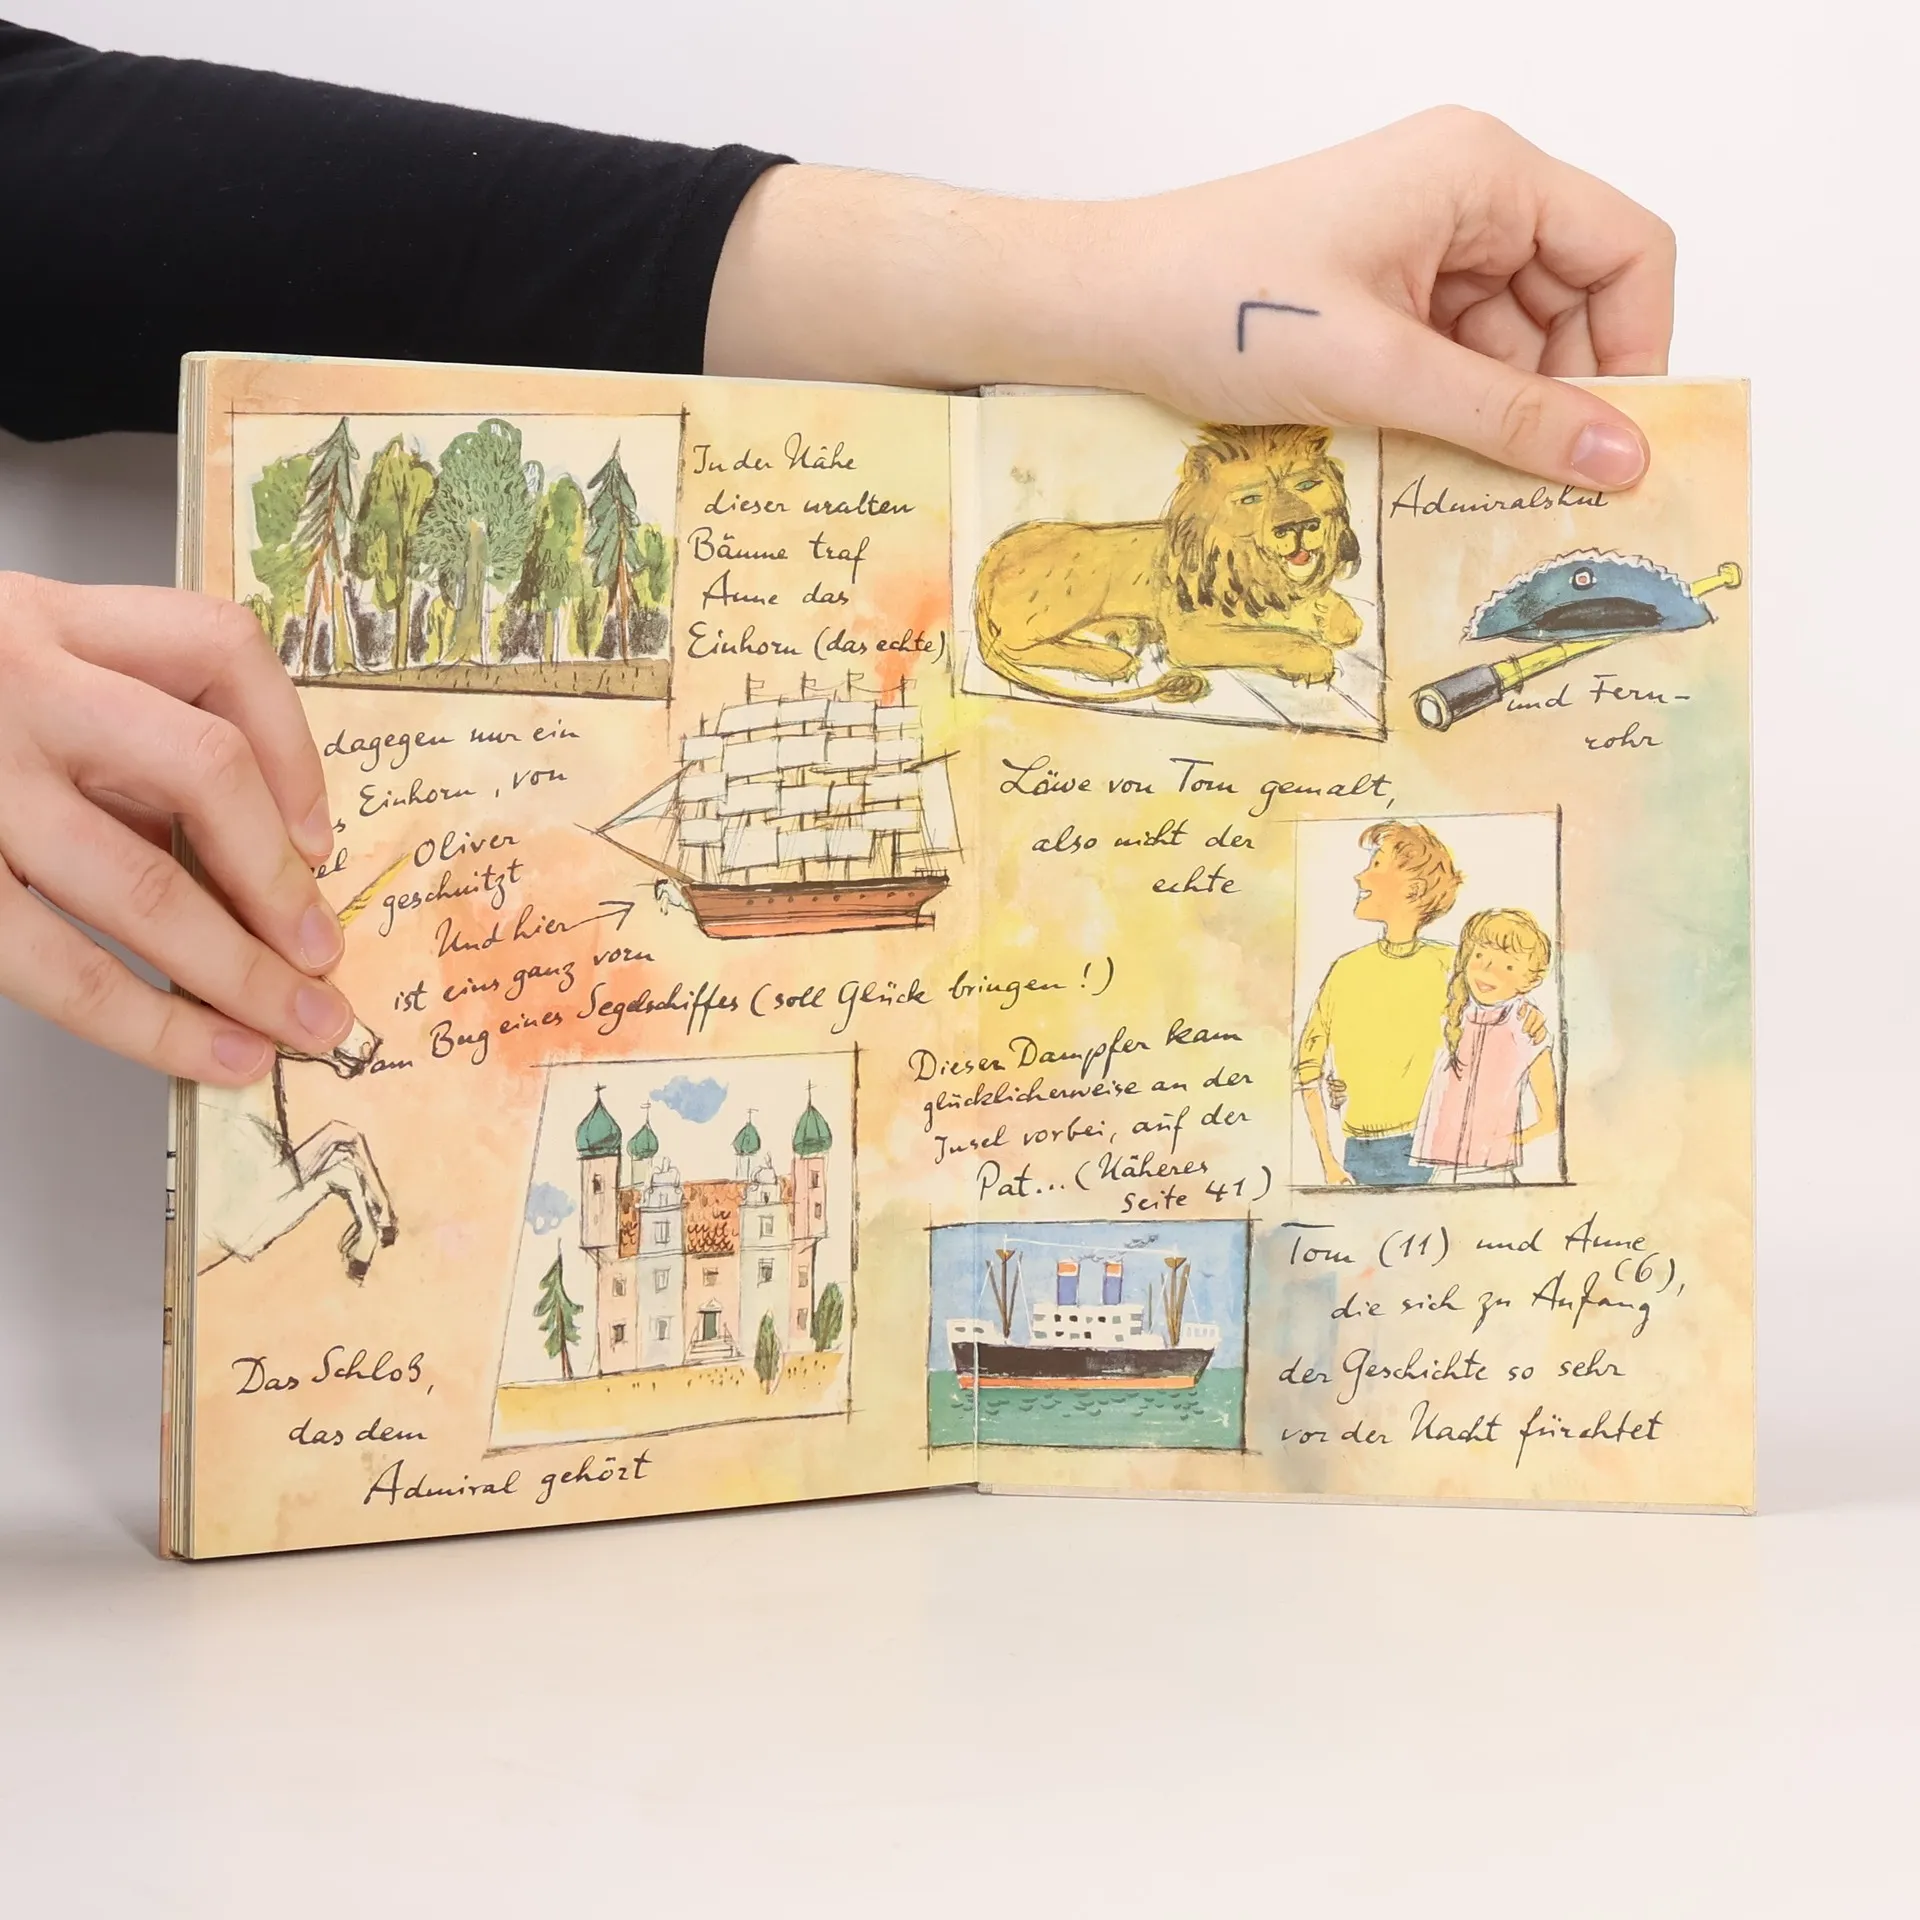 In der Nähe
dieser uralten
Bäume traf
Anne das
Einhorn (das echte)
dagegen nur ein
Einhorn, von
Oliver
geschnitzt
Und hier
ist eins ganz vorn
am Bug eines Segelschiffes (soll Glück bringen!)
Das Schloß,
das dem
Admiral gehört
Admiralshut
und Fern-
rohr
Löwe von Tom gemalt,
also nicht der
echte
Dieser Dampfer kam
glücklicherweise an der
Insel vorbei, auf der
Pat... (Näheres
Seite 41)
Tom (11) und Anne
(6),
die sich zu Anfang
der Geschichte so sehr
vor der Nacht fürchtet